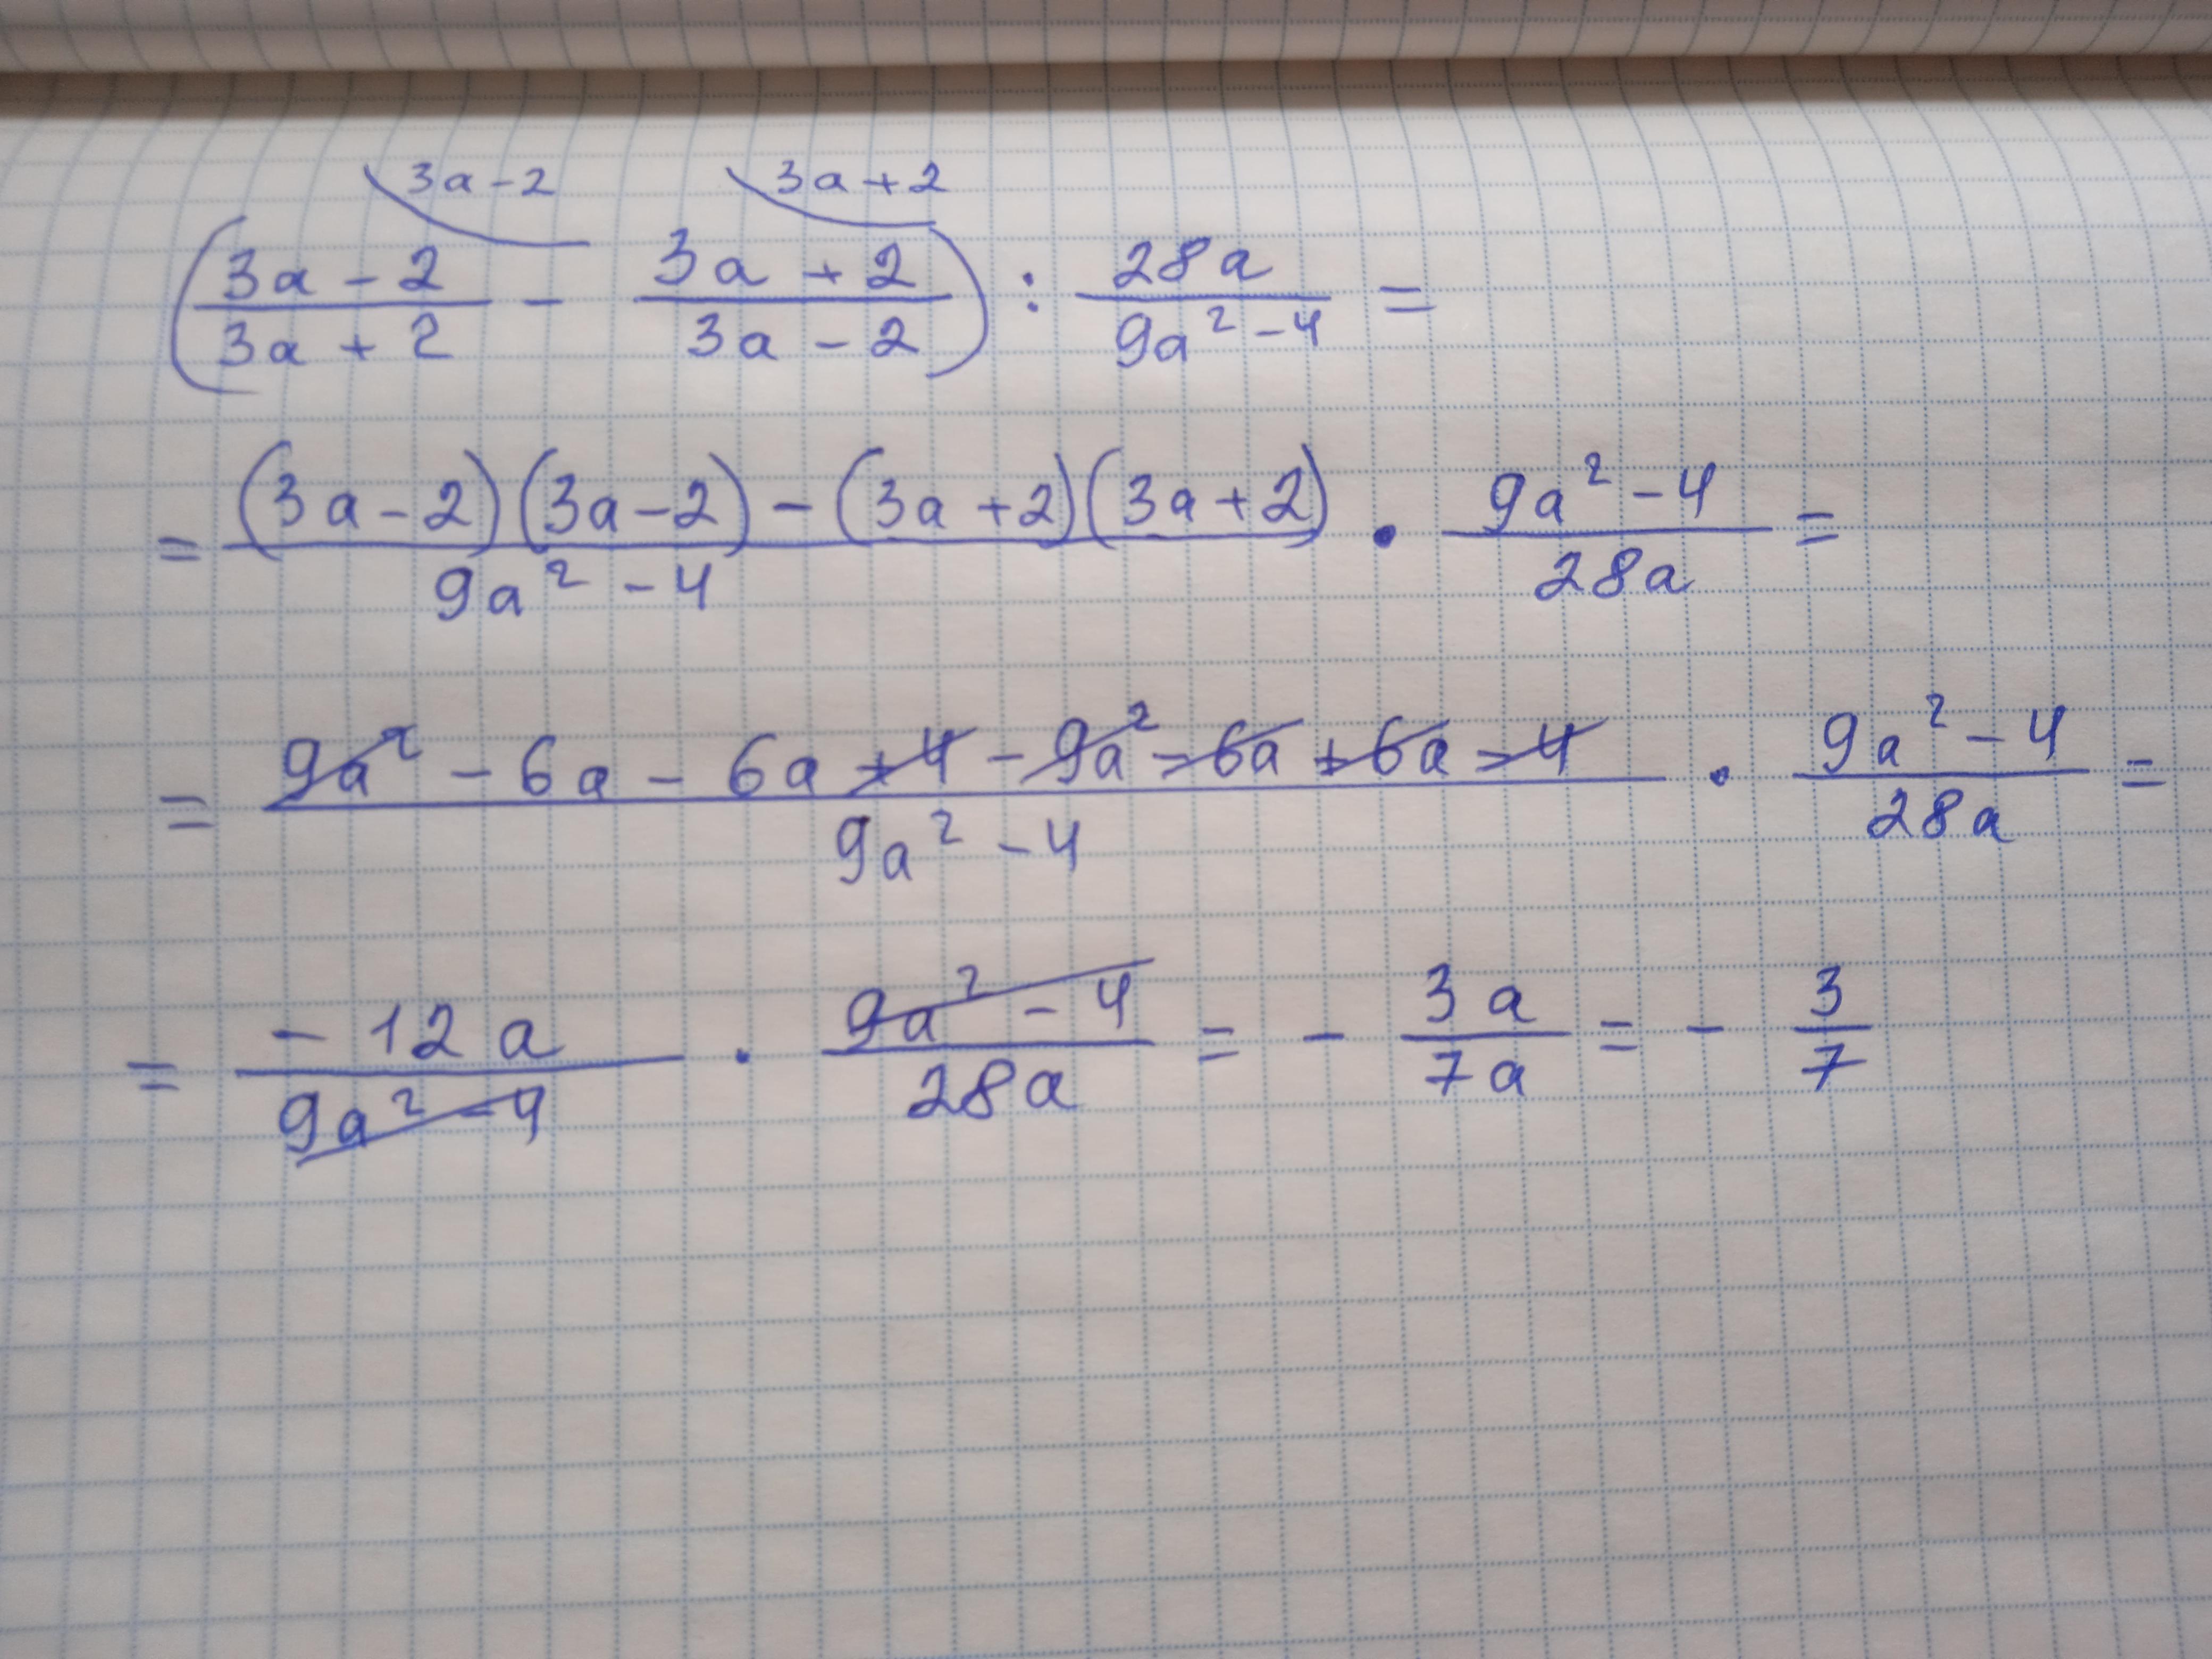 3a-2 3a+2
(3a-2/3a+2 - 3a+2/3a-2) : 28a/9a²-4 =
= (3a-2)(3a-2)-(3a+2)(3a+2)/9a²-4 · 9a²-4/28a =
= 9a²-6a-6a+4-9a²-6a+6a-4/9a²-4 · 9a²-4/28a =
= -12a/9a²-4 · 9a²-4/28a = - 3a/7a = - 3/7